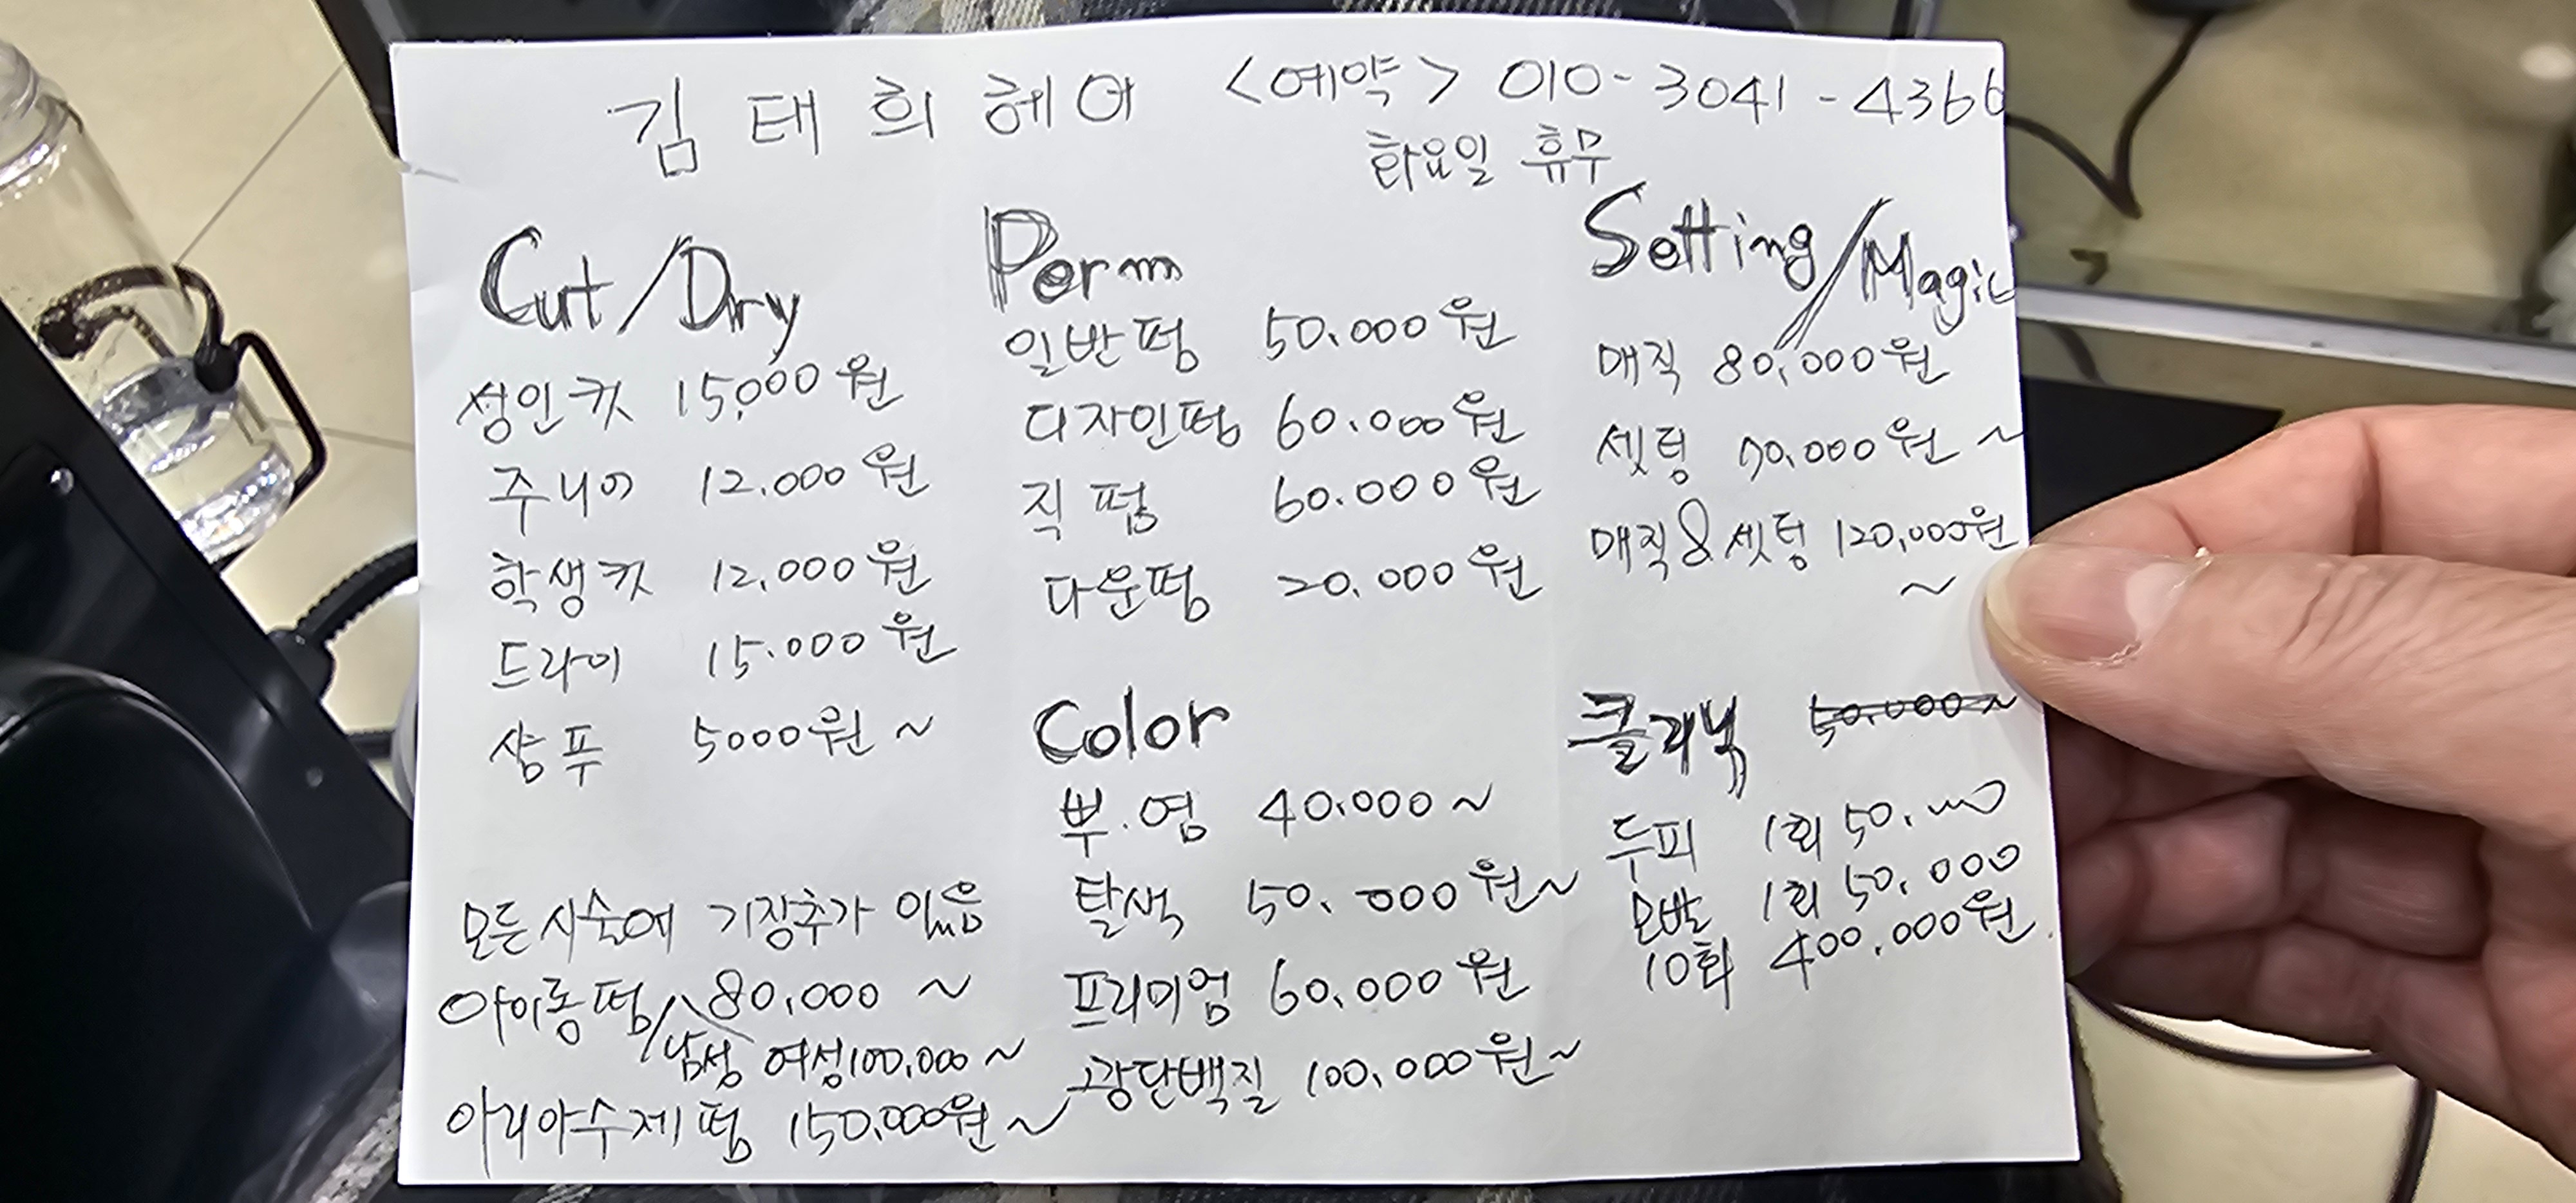 김태희헤어 <예약> 010-3041-4366
화요일 휴무
Cut/Dry
성인컷 15,000원
주니어 12.000원
학생컷 12,000원
드라이 15.000원
샴푸 5000원~
모든시술에 기장추가 있음
아이롱펌/남성 80,000 ~
여성100,000~
아리아수제펌 150,000원~
Perm
일반펌 50.000원
디자인펌 60.000원
직펌 60.000원
다운펌 20.000원
Color
뿌.염 40.000~
탈색 50.000원~
프리미엄 60.000원
광단백질 100,000원~
Setting/Magic
매직 80,000원
셋팅 70,000원~
매직&셋팅 120,000원
~
클리닉 50.000~
두피 1회 50.000
모발 1회 50,000
10회 400,000원.